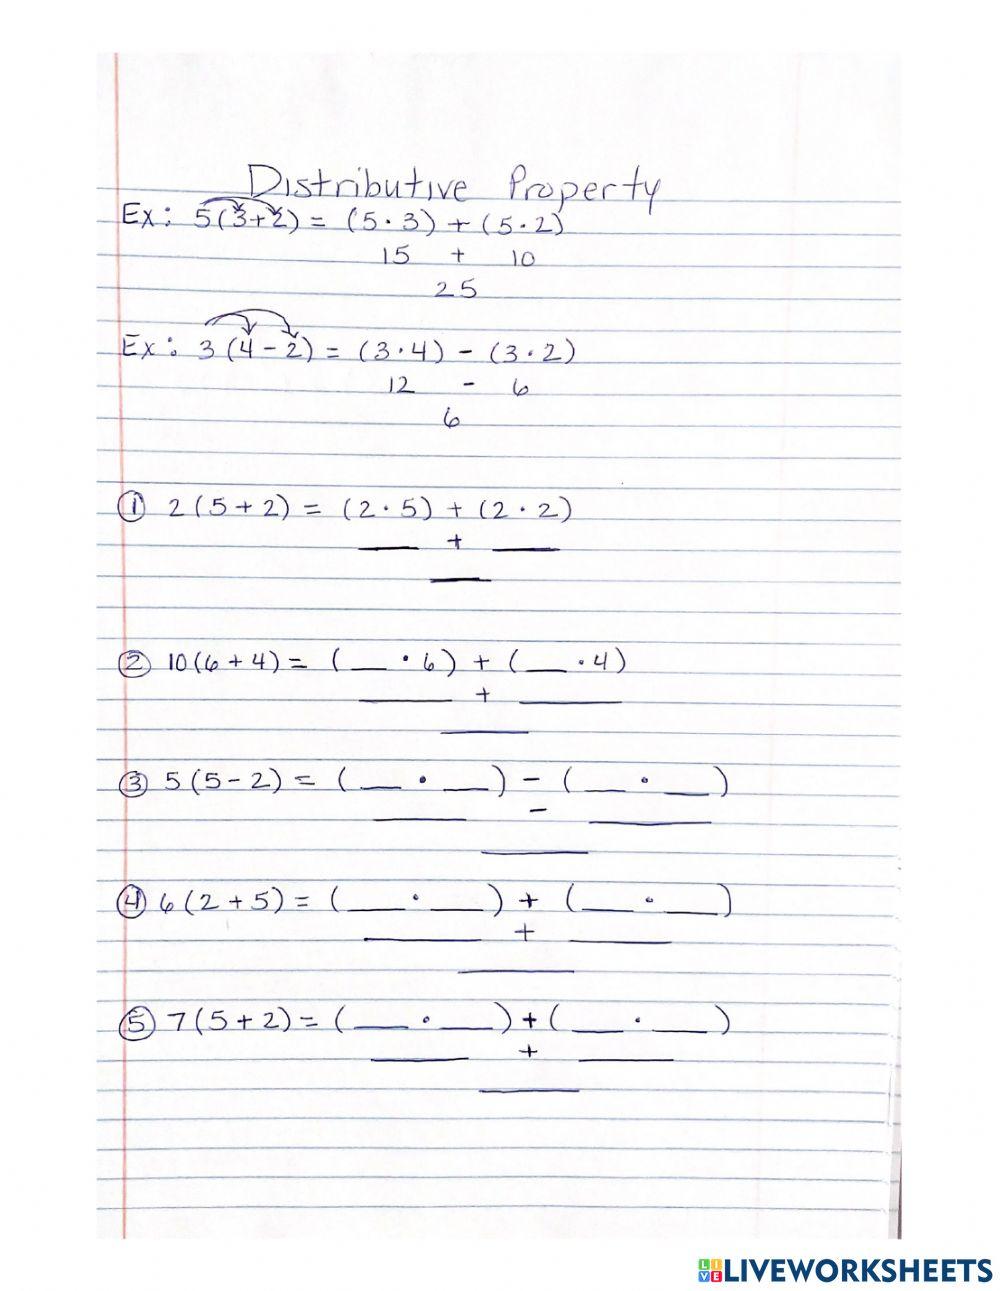 Distributive Property
Ex: 5(3+2) = (5·3) + (5·2)
15 + 10
25
Ex: 3(4-2) = (3·4) - (3·2)
12 - 6
6
① 2(5+2) = (2·5) + (2·2)
___ + ___
___
② 10(6+4) = (___·6) + (___·4)
___ + ___
___
③ 5(5-2) = (___·___) - (___·___)
___ - ___
___
④ 6(2+5) = (___·___) + (___·___)
___ + ___
___
⑤ 7(5+2) = (___·___) + (___·___)
___ + ___
___
LIVE LIVEWORKSHEETS